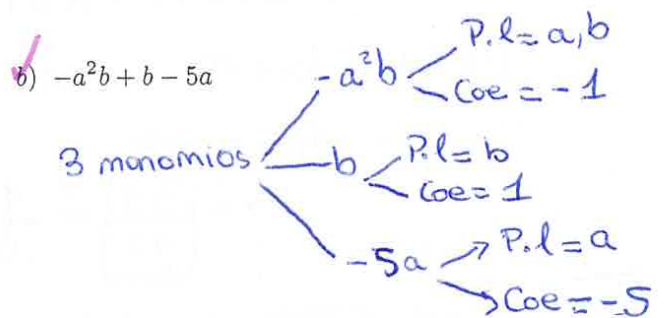 b) -a²b + b - 5a
3 monomios
-a²b
P.l = a, b
Coe = -1
b
P.l = b
Coe = 1
-5a
P.l = a
Coe = -5